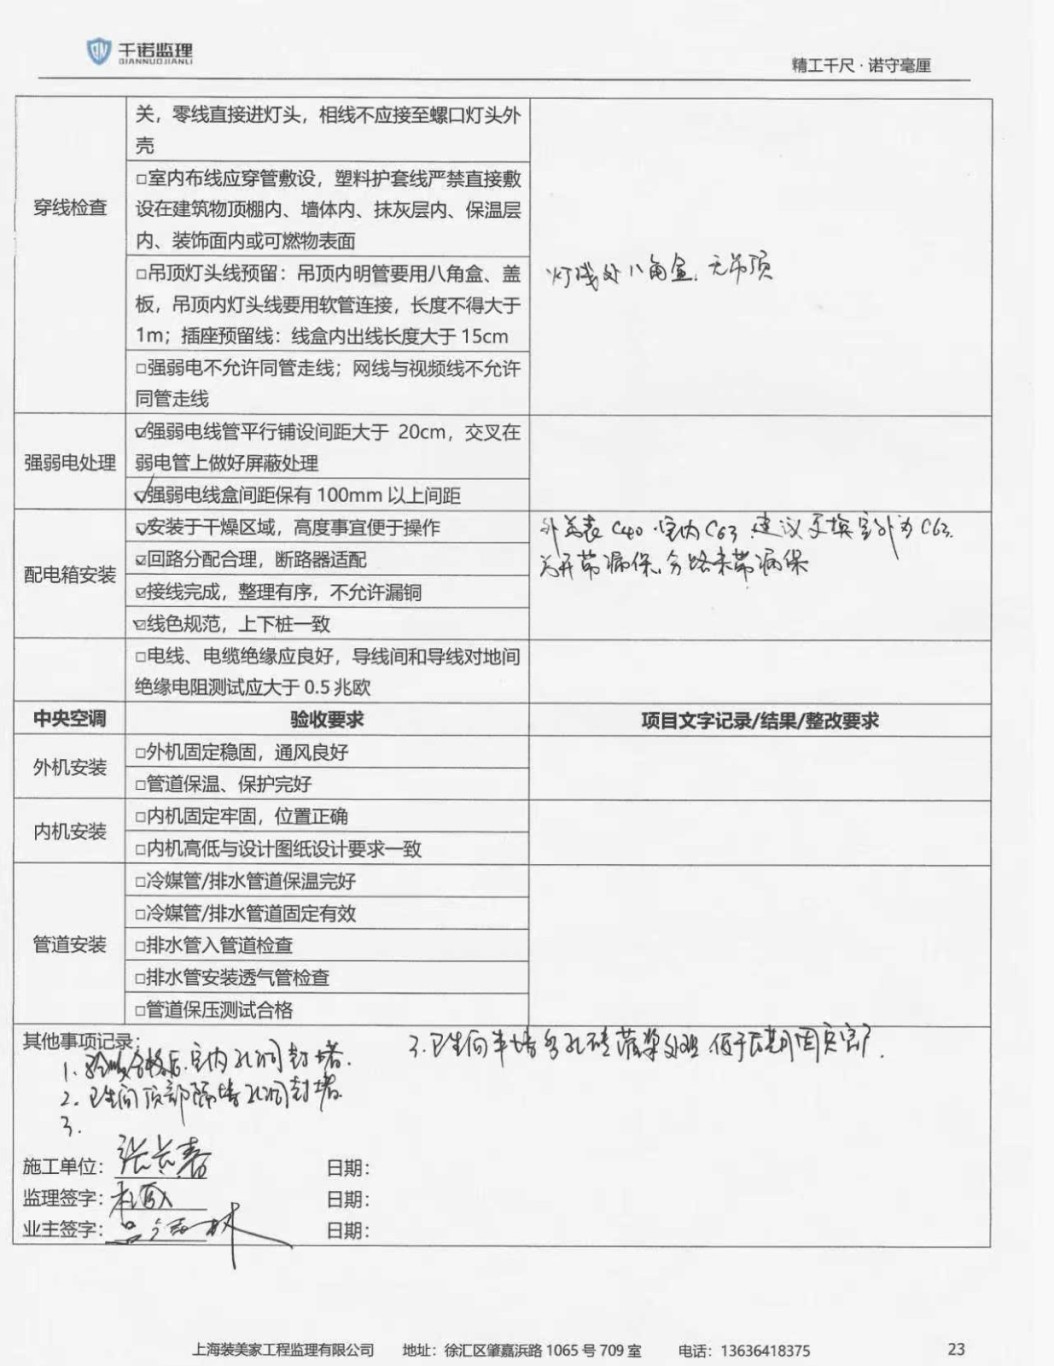 千诺监理
QIANNUOJIANLI
精工千尺·诺守毫厘
穿线检查
关，零线直接进灯头，相线不应接至螺口灯头外
壳
□室内布线应穿管敷设，塑料护套线严禁直接敷
设在建筑物顶棚内、墙体内、抹灰层内、保温层
内、装饰面内或可燃物表面
□吊顶灯头线预留：吊顶内明管要用八角盒、盖
板，吊顶内灯头线要用软管连接，长度不得大于
1m；插座预留线：线盒内出线长度大于15cm
灯线处八角盒.无吊顶
□强弱电不允许同管走线；网线与视频线不允许
同管走线
强弱电处理
☑强弱电线管平行铺设间距大于 20cm，交叉在
弱电管上做好屏蔽处理
☑强弱电线盒间距保有100mm以上间距
配电箱安装
☑安装于干燥区域，高度事宜便于操作
☑回路分配合理，断路器适配
☑接线完成，整理有序，不允许漏铜
☑线色规范，上下桩一致
外总表C40.室内C63.建议更换室外为C63.
总开带漏保.分路未带漏保
□电线、电缆绝缘应良好，导线间和导线对地间
绝缘电阻测试应大于0.5兆欧
中央空调 验收要求 项目文字记录/结果/整改要求
外机安装
□外机固定稳固，通风良好
□管道保温、保护完好
内机安装
□内机固定牢固，位置正确
□内机高低与设计图纸设计要求一致
管道安装
□冷媒管/排水管道保温完好
□冷媒管/排水管道固定有效
□排水管入管道检查
□排水管安装透气管检查
□管道保压测试合格
其他事项记录：
1.验收合格后.室内孔洞封堵.
2.卫生间顶部隔墙孔洞封堵
3.
3.卫生间半墙多孔砖灌浆处理 便于后期固定
施工单位：张长春 日期：
监理签字： 日期：
业主签字： 日期：
上海装美家工程监理有限公司 地址：徐汇区肇嘉浜路1065号709室 电话：13636418375 23